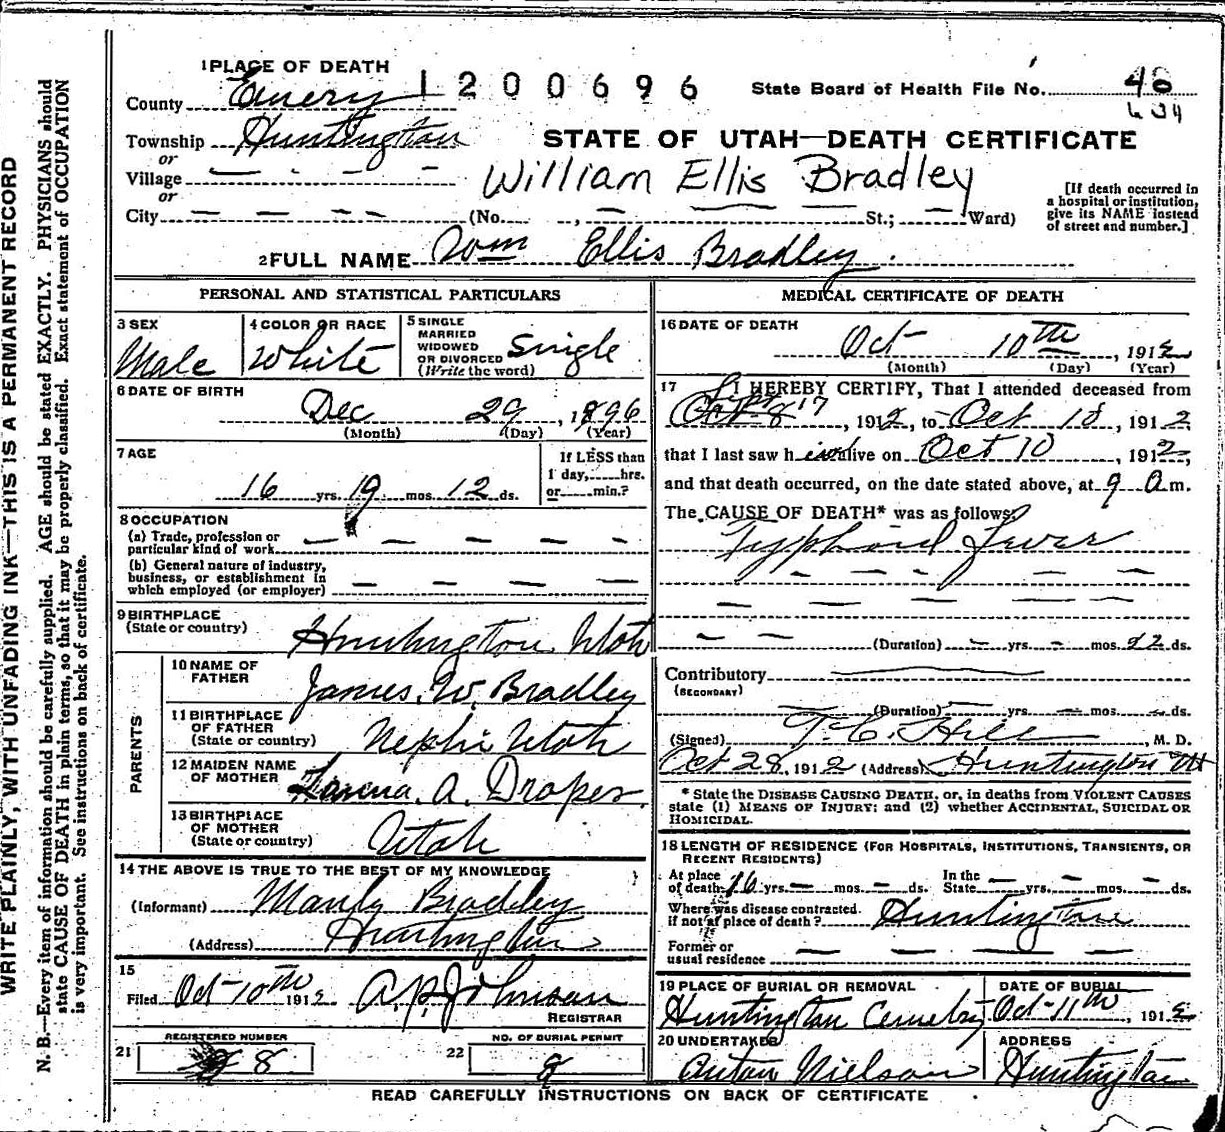 WRITE PLAINLY, WITH UNFADING INK—THIS IS A PERMANENT RECORD
N. B.—Every item of information should be carefully supplied. AGE should be stated EXACTLY. PHYSICIANS should
state CAUSE OF DEATH in plain terms, so that it may be properly classified. Exact statement of OCCUPATION
is very important. See instructions on back of certificate.
1 PLACE OF DEATH
County Emery 1200696 State Board of Health File No. 46
634
Township Huntington STATE OF UTAH—DEATH CERTIFICATE
or
Village — - - - William Ellis Bradley
or
City — — — — (No. — , — St.; — Ward)
[If death occurred in
a hospital or institution,
give its NAME instead
of street and number.]
2 FULL NAME Wm Ellis Bradley
PERSONAL AND STATISTICAL PARTICULARS
3 SEX
Male
4 COLOR OR RACE
White
5 SINGLE
MARRIED
WIDOWED
OR DIVORCED
(Write the word)
Single
6 DATE OF BIRTH
Dec 29, 1896
(Month) (Day) (Year)
7 AGE
16 yrs. 19 mos. 12 ds.
If LESS than
1 day,......hrs.
or......min.?
8 OCCUPATION
(a) Trade, profession or
particular kind of work — — — — —
(b) General nature of industry,
business, or establishment in
which employed (or employer) — — — —
9 BIRTHPLACE
(State or country) Huntington Utah
PARENTS
10 NAME OF
FATHER James. W. Bradley
11 BIRTHPLACE
OF FATHER
(State or country) Nephi Utah
12 MAIDEN NAME
OF MOTHER A. Draper
13 BIRTHPLACE
OF MOTHER
(State or country) Utah
14 THE ABOVE IS TRUE TO THE BEST OF MY KNOWLEDGE
(Informant) Bradley
(Address) Huntington
15
Filed Oct-10th 1912 A.P. Johnson
REGISTRAR
21 REGISTERED NUMBER
8
22 NO. OF BURIAL PERMIT
8
MEDICAL CERTIFICATE OF DEATH
16 DATE OF DEATH
Oct 10th, 1912
(Month) (Day) (Year)
17 I HEREBY CERTIFY, That I attended deceased from
17, 1912, to Oct 10, 1912
that I last saw h im alive on Oct 10, 1912,
and that death occurred, on the date stated above, at 9 a m.
The CAUSE OF DEATH* was as follows:
Typhoid Fever
— — — —
— — — — —
— — (Duration) — yrs. — mos. 22 ds.
Contributory
(SECONDARY)
(Duration) — yrs. — mos. — ds.
(Signed) T. C. Hill, M. D.
Oct 28, 1912 (Address) Huntington Ut
* State the DISEASE CAUSING DEATH, or, in deaths from VIOLENT CAUSES
state (1) MEANS OF INJURY; and (2) whether ACCIDENTAL, SUICIDAL OR
HOMICIDAL.
18 LENGTH OF RESIDENCE (FOR HOSPITALS, INSTITUTIONS, TRANSIENTS, OR
RECENT RESIDENTS)
At place
of death 16 yrs. — mos. — ds. In the
State — yrs. — mos. — ds.
Where was disease contracted.
if not at place of death? Huntington
Former or
usual residence — — — —
19 PLACE OF BURIAL OR REMOVAL
Huntington Cemetry
DATE OF BURIAL
Oct-11th, 1912
20 UNDERTAKER
Anton Nielson
ADDRESS
Huntington
READ CAREFULLY INSTRUCTIONS ON BACK OF CERTIFICATE